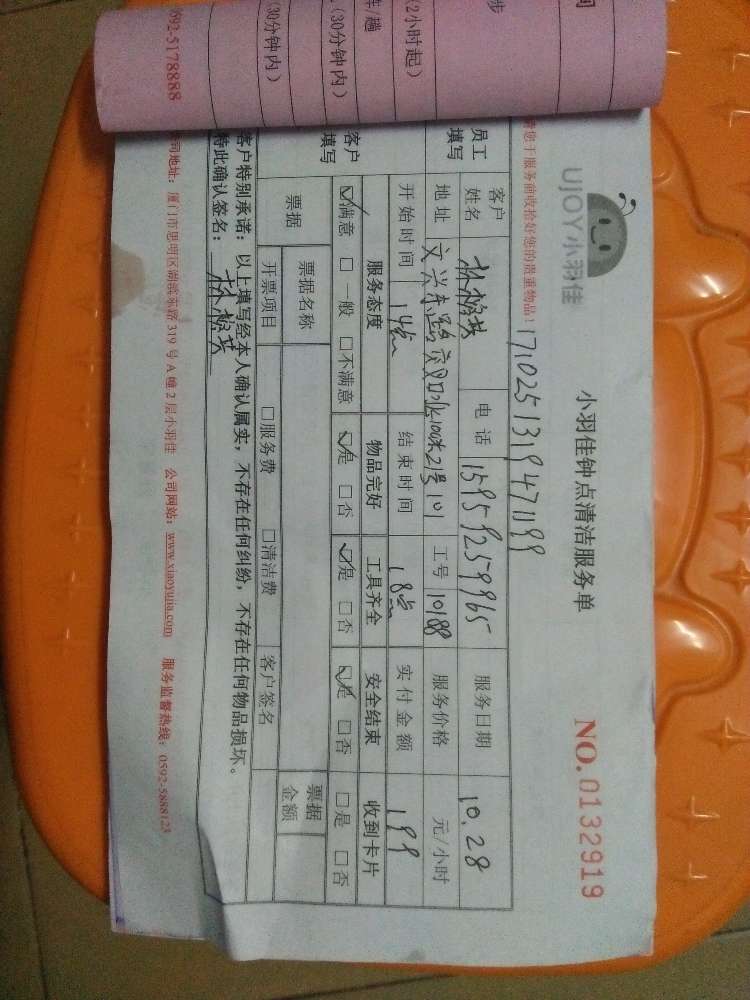 步
(2小时起)
车 趟
(30分钟内)
(30分钟内)
592-5178888
UJOY小羽佳
小羽佳钟点清洁服务单
NO.0132919
请您于服务前收拾好您的贵重物品!
1710251319471199
员工填写
客户姓名
电话 15959259965
服务日期 10.28
地址 文兴东路
21号101
工号 10188
服务价格 元/小时
开始时间 14点
结束时间 18点
实付金额 199
客户填写
服务态度 物品完好 工具齐全 安全结束 收到卡片
☑满意 □一般 □不满意 ☑是 □否 ☑是 □否 ☑是 □否 □是 □否
票据
票据名称
票据金额
开票项目 □服务费 □清洁费 客户签名
客户特别承诺:以上填写经本人确认属实,不存在任何纠纷,不存在任何物品损坏。
特此确认签名:
公司地址:厦门市思明区湖滨东路319号A幢2层小羽佳 公司网站:www.xiaoyujia.com 服务监督热线:0592-5888123